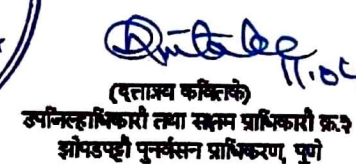 11.08
(दत्तात्रय कवितके)
उपजिल्हाधिकारी तथा सक्षम प्राधिकारी क्र.२
झोपडपट्टी पुनर्वसन प्राधिकरण, पुणे